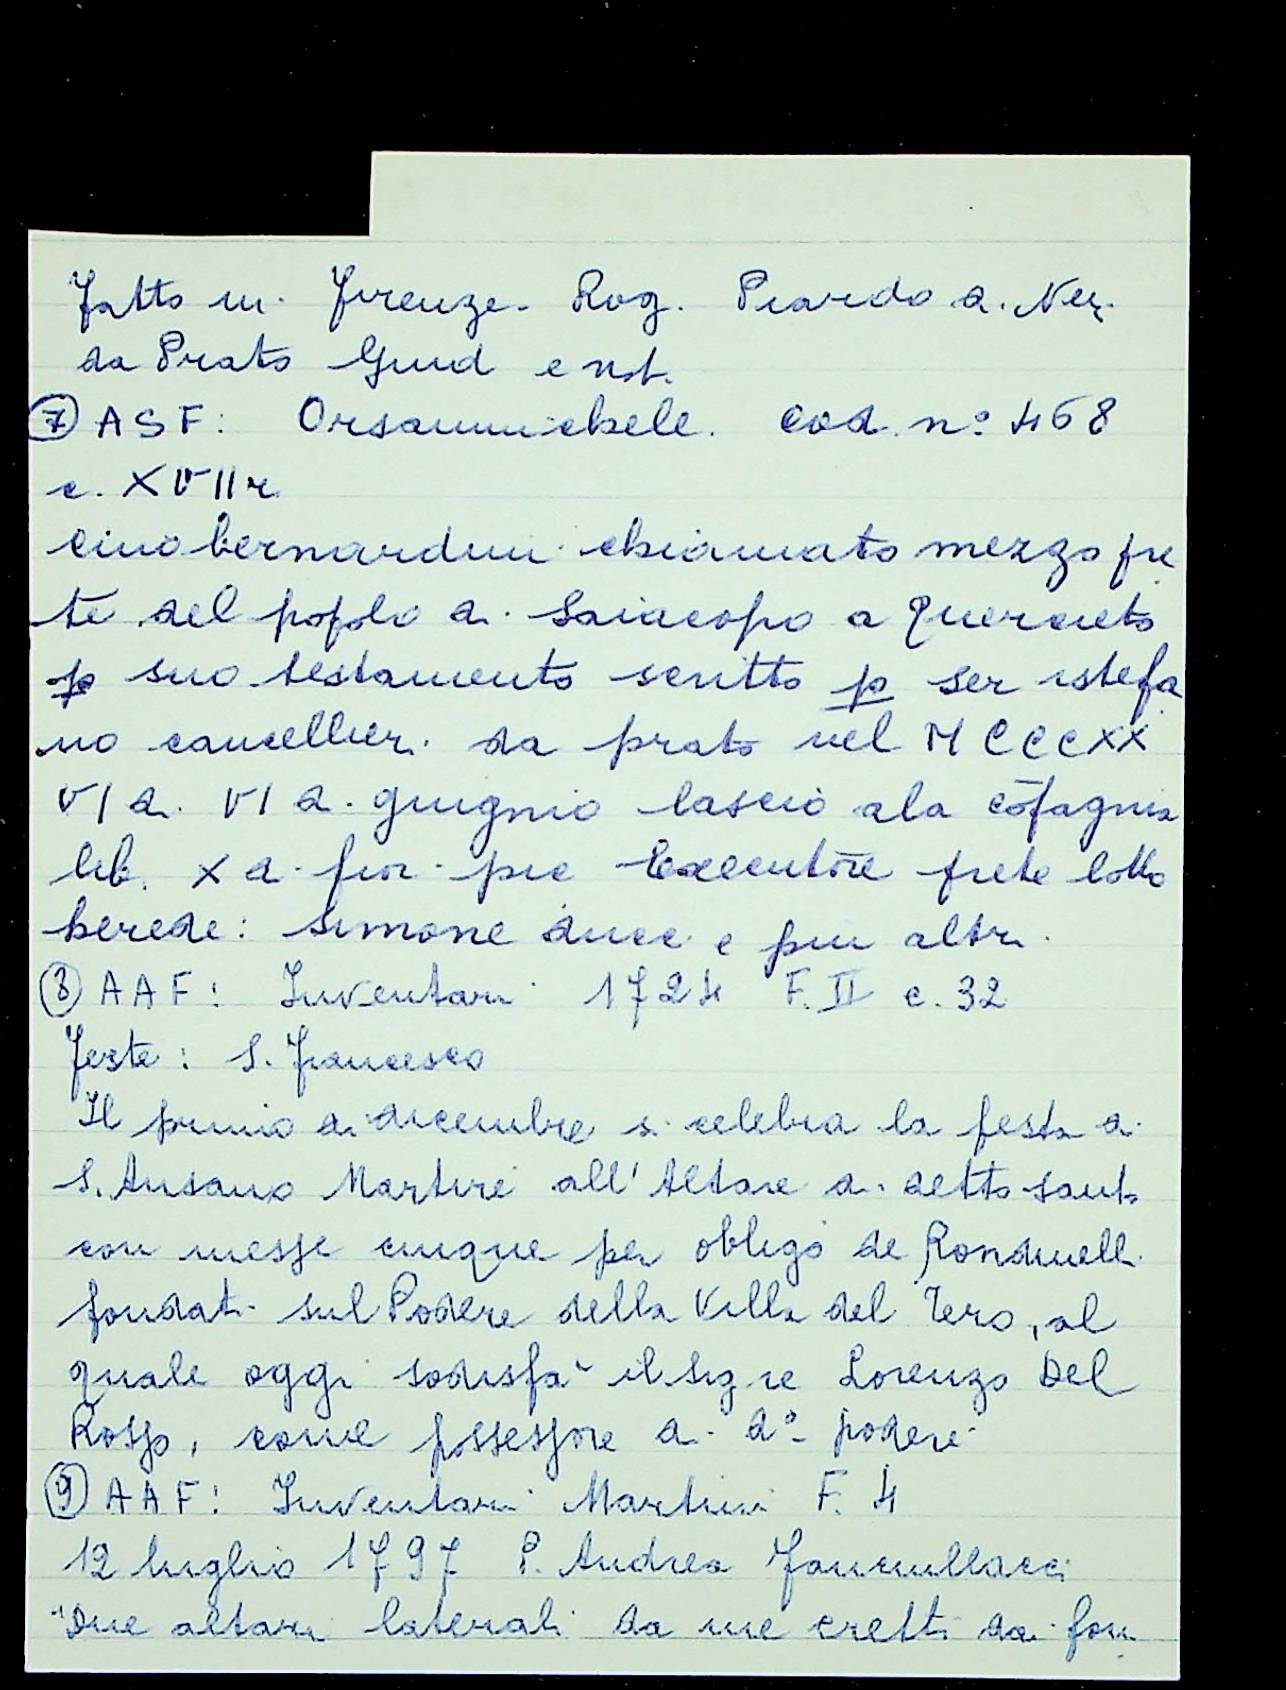 Fatto in Firenze. Rog. Piardo di Neri
da Prato Giud e not.
⑦ ASF: Orsanmichele. Cod. n° 468
c. XVIIr
Cino bernardini chiamato mezzo fre
te del popolo di Saiacopo a Querceto
p suo testamento scritto p ser istefa
no cancellieri da prato nel MCCCXX
VI di VI di giugnio lascio ala cōpagnia
lib. X di fior pic Executōre frete lotto
herede: simone ducci e piu altri
⑧ AAF: Inventari 1724 F. II c. 32
Feste: S. Francesco
Il primo di dicembre si celebra la festa di
S. Ansano Martire all' Altare di detto santo
con messe cinque per obligo de Rondinelli
fondati sul Podere della Villa del Pero, al
quale oggi sodisfà il Sig re Lorenzo Del
Rosso, come possessore di d° podere
⑨ AAF: Inventari Martini F. 4
12 luglio 1797 P. Andrea Fanciullacci
"Due altari laterali da me eretti dai fon